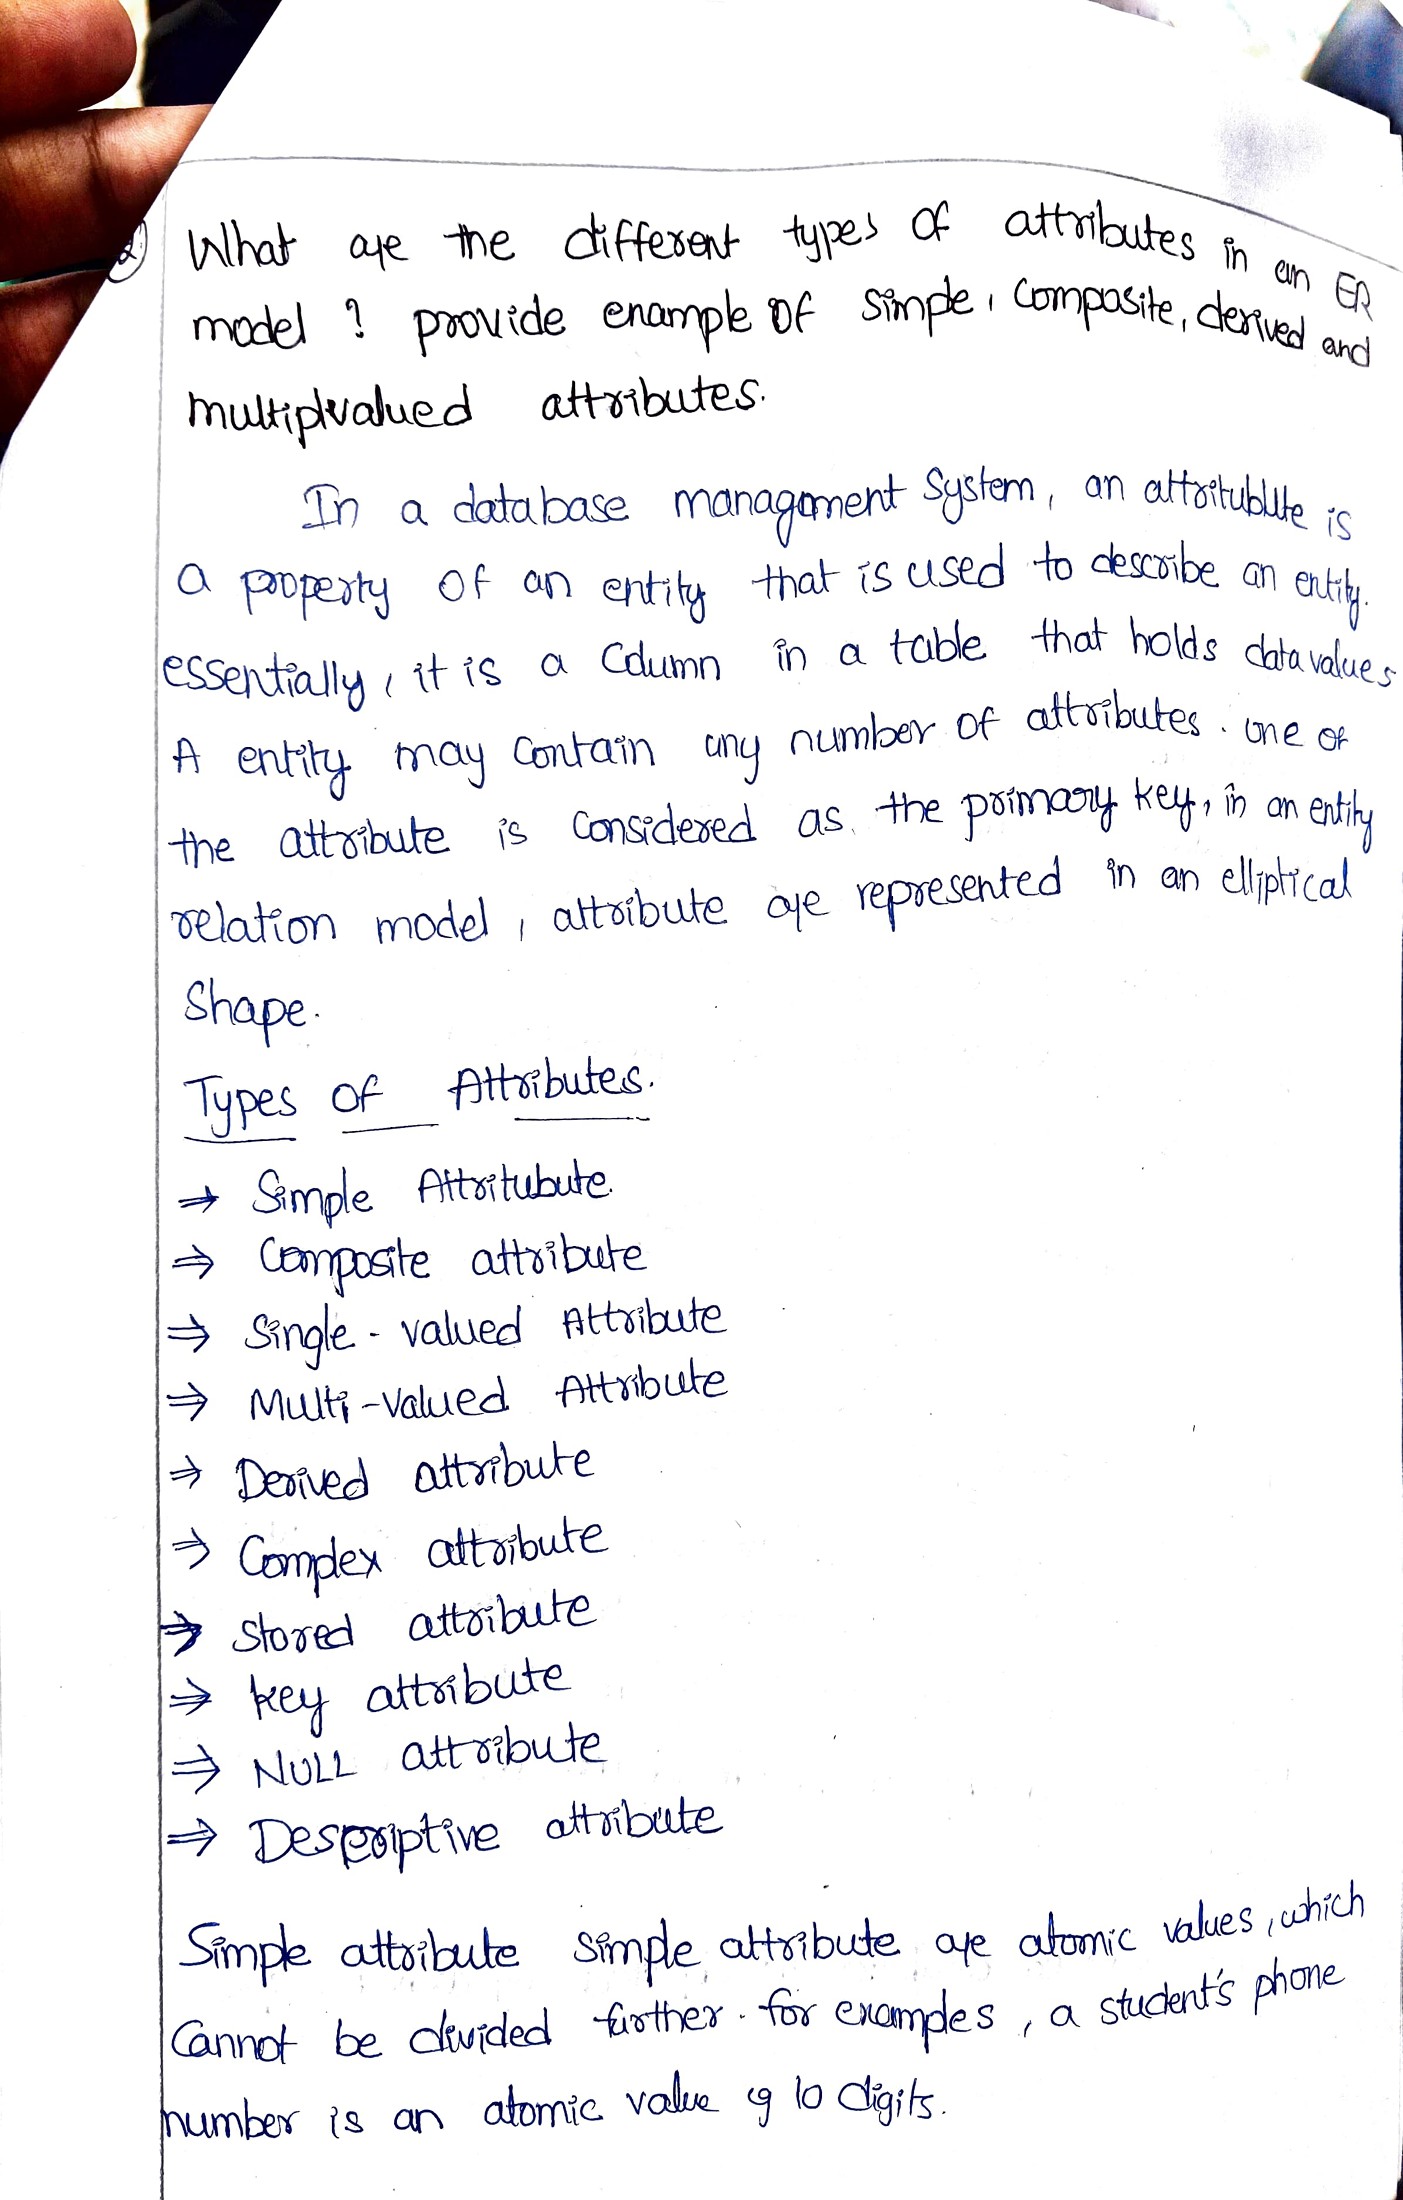 2) What are the different types of attributes in an ER
model ? provide enample of simple, composite, derived and
multiplvalued attributes.
In a database managament System, an attritublte is
a property of an entity that is used to describe an entity.
essentially, it is a Column in a table that holds data values
A entity may contain any number of attributes. one of
the attribute is considered as the primary key, in an entity
relation model, attribute are represented in an elliptical
Shape.
Types of Attributes.
→ Simple Attritubute.
⇒ Composite attribute
⇒ Single - valued Attribute
⇒ Multi-valued Attribute
⇒ Derived attribute
⇒ Complex attribute
⇒ Stored attribute
⇒ key attribute
⇒ NULL attribute
⇒ Descriptive attribute
Simple attribute simple attribute are atomic values, which
Cannot be divided further. for examples, a student's phone
number is an atomic value 10 digits.